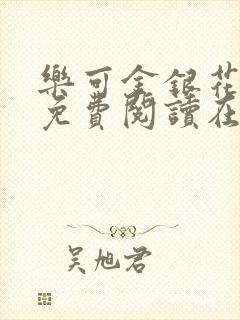 樂可金銀花
免費閱讀在
吴旭君